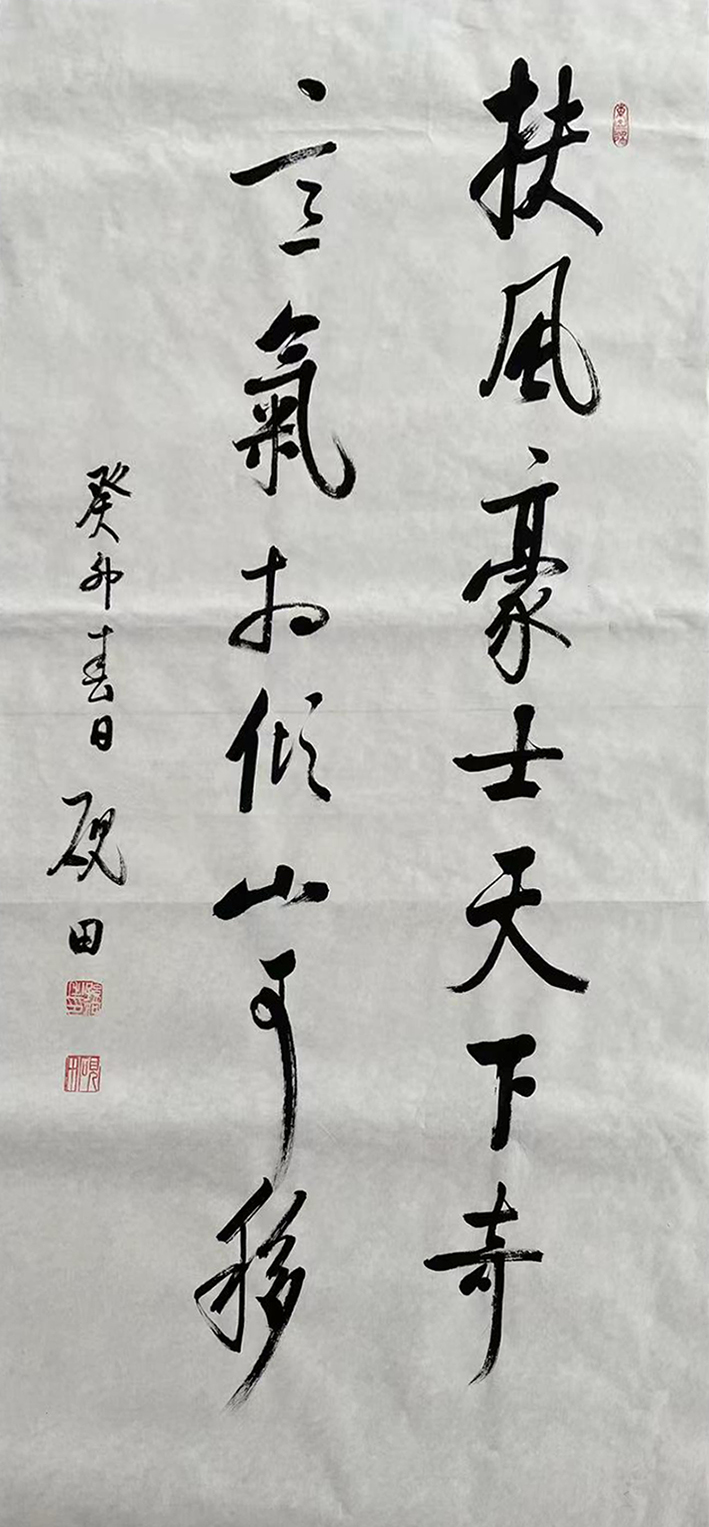 扶風豪士天下奇
意氣相傾山可移
癸卯春日 硯田
硯田